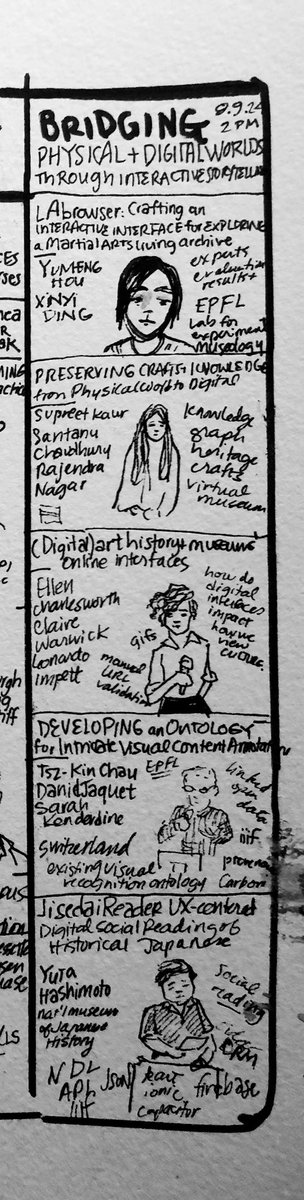 BRIDGING 8.9.24
2 PM
PHYSICAL + DIGITAL WORLDS
THROUGH INTERACTIVE STORYTELLING
LAbrowser: Crafting an
INTERACTIVE INTERFACE for EXPLORING
a Martial ARTS living archive
YUMENG
HOU
XINYI
DING
experts
evaluation
results +
EPFL
Lab for
experimental
museology
PRESERVING CRAFTS KNOWLEDGE
from Physical World to Digital
Supreet Kaur
Santanu
Chowdhury
Rajendra
Nagar
knowledge
graph
heritage
crafts
virtual
museum
(Digital) art history + museums
online interfaces
Ellen
Charlesworth
Claire
Warwick
Leonardo
Impett
gifs
manual
URL
validation
how do
digital
interfaces
impact
how we
view
CULTURE.
DEVELOPING an ONTOLOGY
for Intricate Visual Content Annotation
Tsz-Kin Chau
Daniel Jaquet
Sarah
Kenderdine
EPFL
Switzerland
existing visual
recognition ontology
linked
open
data
iiif
Carbon
JisedaiReader UX-centered
Digital Social Reading of
Historical Japanese
Yuta
Hashimoto
nat'l museum
of Japanese
History
social
reading
NDL
API
IIIF
JSON
ionic
capacitor
firebase